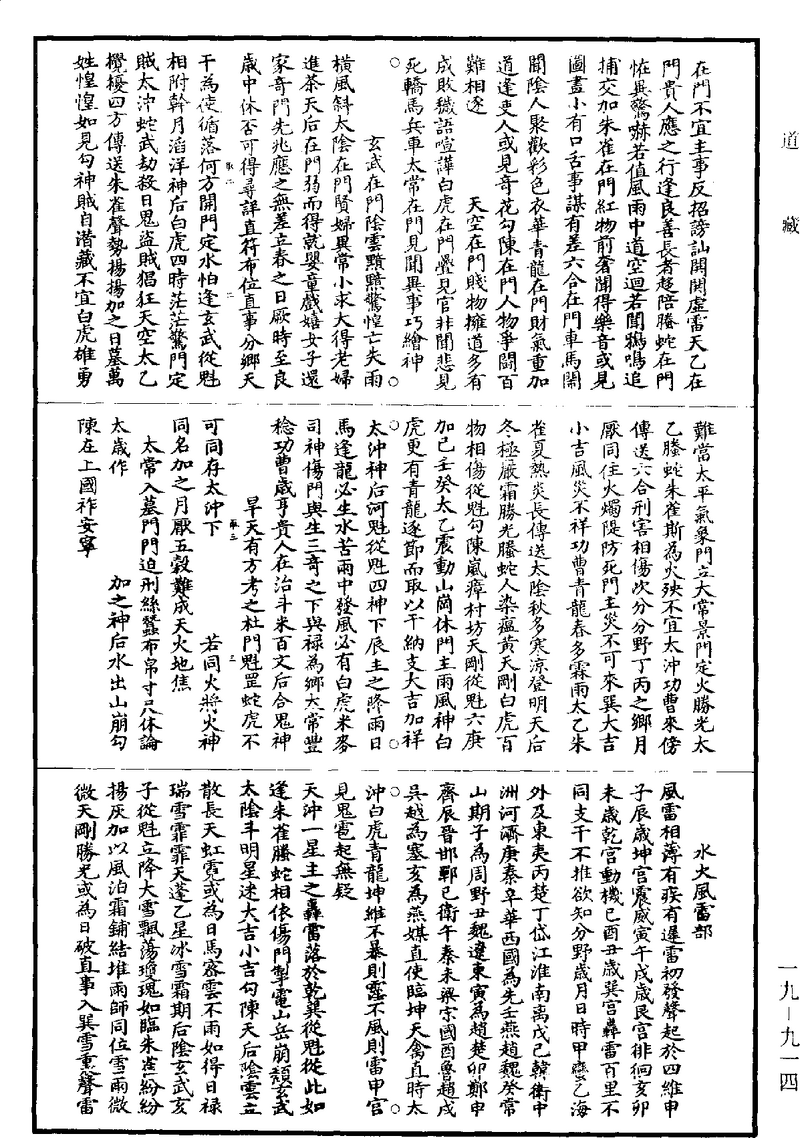 道藏
在門不宜主事反招謗訕開閉虛雷天乙在
門貴人應之行逢良善長者趨陪螣蛇在門
恠異驚嚇若值風雨中道空迴若聞鴉鳴追
捕交加朱雀在門紅物前奢聞得樂音或見
圖畫小有口舌事謀有差六合在門車馬鬧
聞陰人聚歡彩色衣華青龍在門財氣重加
道逢吏人或見奇花勾陳在門人物爭鬪百
難相逐　天空在門賤物擁道多有
成敗穢語喧譁白虎在門疊見官非聞悲見
死轎馬兵車太常在門見聞異事巧繪神
玄武在門陰雲黯黲驚惶亡失雨
橫風斜太陰在門賢婦異常小求大得老婦
進茶天后在門弱而得乾嬰童戲嬉女子還
家奇門先兆應之無差立春之日厥時至良
歲中休否可得尋詳直符布位直事分鄉天
干為使循落何方開門定水怕逢玄武從魁
相附幹月滔洋神后白虎四時茫茫驚門定
賊太沖蛇武劫殺日鬼盜賊猖狂天空太乙
攪擾四方傳送朱雀聲勢揚揚加之日墓萬
姓惶惶如見勾神賊自潛藏不宜白虎雄勇
難當太平氣象門立大常景門定火勝光太
乙螣蛇朱雀斯為火殃不宜太沖功曹來傍
傳送六合刑害相傷次分分野丁丙之鄉月
厭同住火燭隄防死門主災不可來巽大吉
小吉風災不祥功曹青龍春多霖雨太乙朱
雀夏熱炎長傳送太陰秋多寒涼登明天后
冬極嚴霜勝光螣蛇人染瘟黃天剛白虎百
物相傷從魁勾陳嵐瘴村坊天剛從魁六庚
加已壬癸太乙震動山崗休門主雨風神白
虎更有青龍逐節而取以干納支大吉加祥
太沖神后河魁從魁四神下辰主之降雨日
馬逢龍必生水苦雨中發風必有白虎米麥
司神傷門與生三奇之下與祿為鄉大常豐
稔功曹歲亨貴人在治斗米百文后合鬼神
旱天有方考之杜門魁罡蛇虎不
可同存太沖下　若同火將火神
同名加之月厭五穀難成天火地焦
太常入墓門門迫刑絲蠶布帛寸尺休論
太歲作　加之神后水出山崩勾
陳在上國祚安寧
水火風雷部
風雷相薄有疾有遲雷初發聲起於四維申
子辰歲坤宮震威寅午戌歲艮宮徘徊亥卯
未歲乾宮動機巳酉丑歲巽宮轟雷百里不
同支干不推欲知分野歲月日時甲齊乙海
外及東夷丙楚丁岱江淮南蠻戊己韓衛中
洲河濟庚秦辛華西國為先壬燕趙魏癸常
山期子為周野丑魏遼東寅為趙楚卯鄭申
齊辰晉邯鄲巳衛午秦未梁宗國酉魯趙戌
吳越為塞亥為燕媒直使臨坤天禽直時太
沖白虎青龍坤維不暴則靂不風則雷甲宮
見鬼雹起無疑
天沖一星主之轟雷落於乾巽從魁從此如
逢朱雀螣蛇相依傷門掣電山岳崩頹玄武
太陰斗明星迷大吉小吉勾陳天后陰雲立
散長天虹霓或為日馬密雲不雨如得日祿
瑞雪霏霏天蓬乙星冰雪霜期后陰玄武亥
子從魁立降大雪飄蕩瓊瑰如臨朱雀紛紛
揚灰加以風泊霜鋪結堆雨師同位雪雨微
微天剛勝光或為日破直事入巽雪重聲雷
一九－九一四